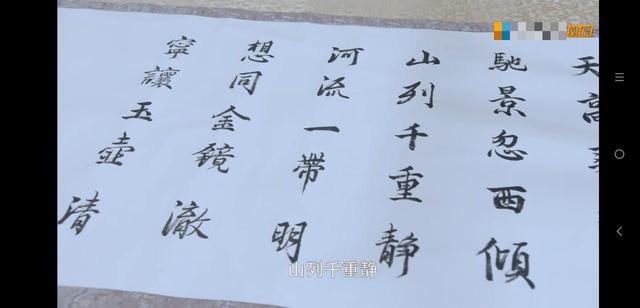 天高
馳景忽西傾
山列千重静
河流一帶明
想同金鏡澈
寧讓玉壺清
山列千重静